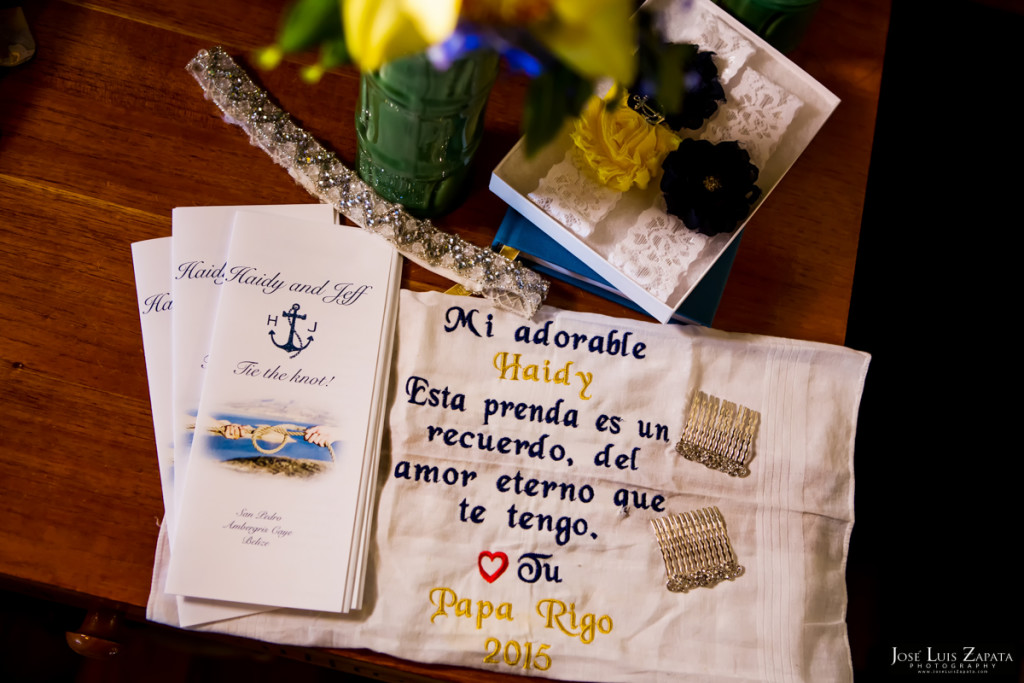 Haidy and Jeff
H J
Tie the knot!
San Pedro
Ambergris Caye
Belize
Haidy
Ha
Mi adorable
Haidy
Esta prenda es un
recuerdo, del
amor eterno que
te tengo.
Tu
Papa Rigo
2015
JOSÉ LUIS ZAPATA
PHOTOGRAPHY
www.JoseLuisZapata.com